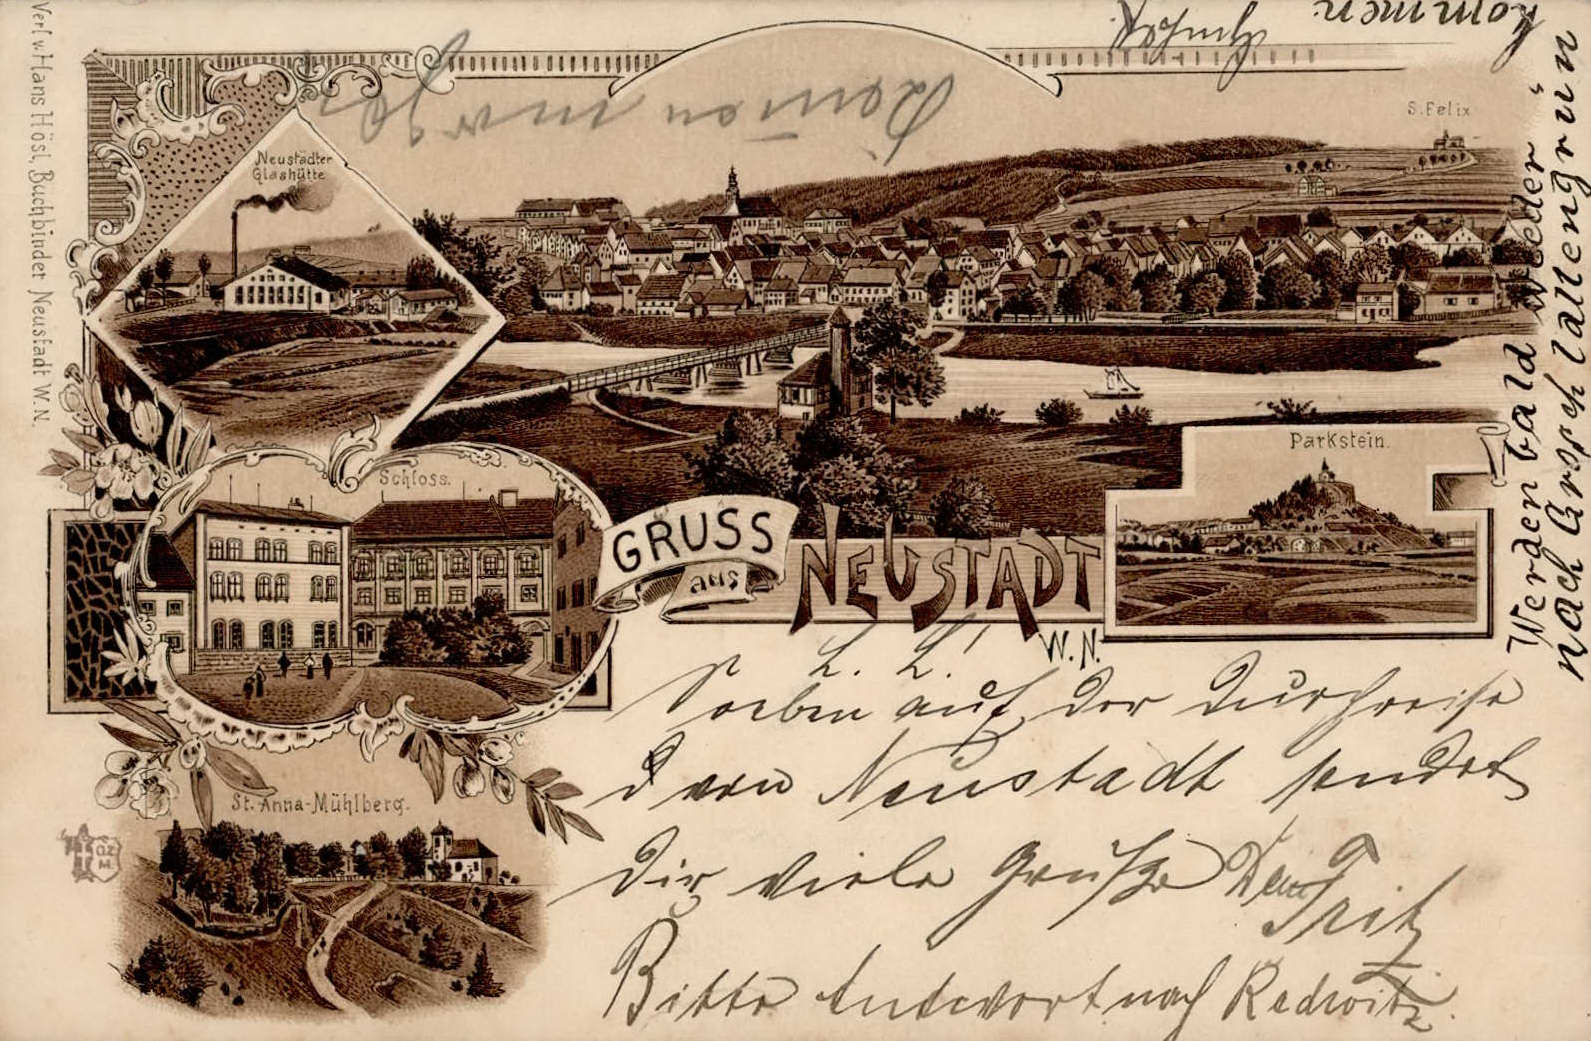 Verl. v. Hans Hösl, Buchbinder Neustadt W.N.
Neustädter
Glashütte
S. Felix
Schloss.
Parkstein.
GRUSS
aus
NEUSTADT
W.N.
St. Anna-Mühlberg.
L. L.!
Soeben auf der Durchreise
von Neustadt sendet
Dir viele Grüße Dein Fritz
Bitte Antwort nach Redwitz.
Werden bald wieder
nach Groschlattengrün
kommen.